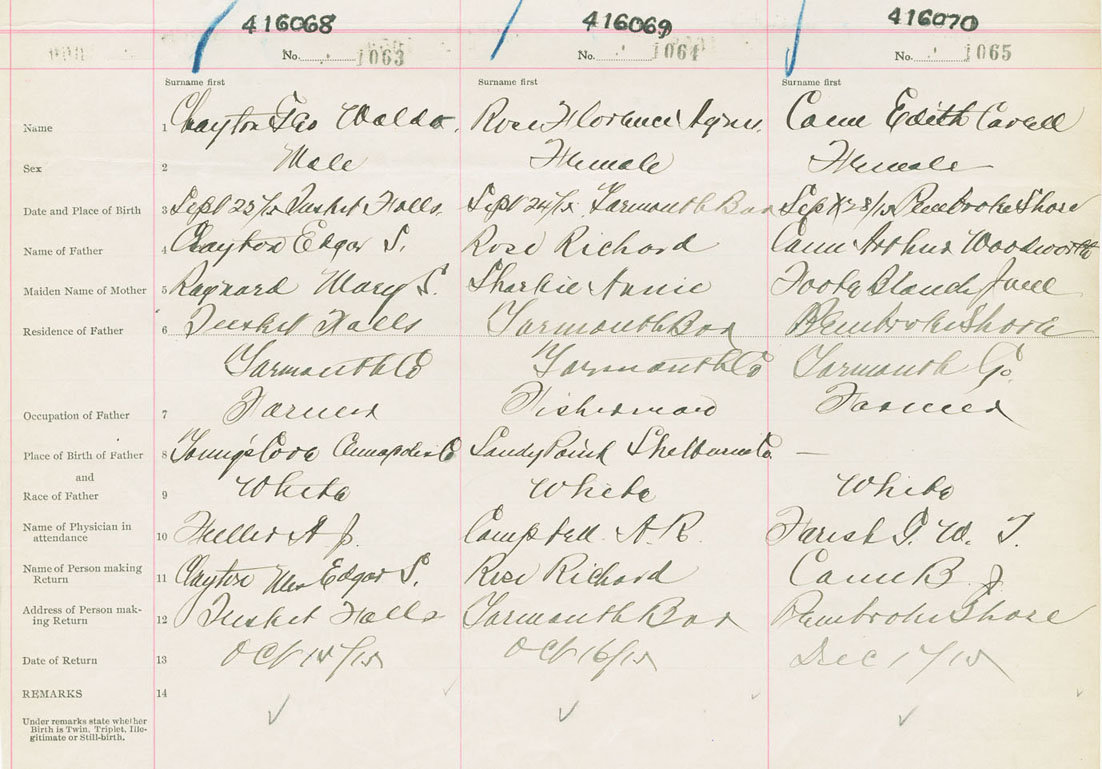 416068 416069 416070
No. 1063 No. 1064 No. 1065
Surname first Surname first Surname first
Name 1 Clayton Geo Waldo. Rose Florence Agnes. Cann Edith Cavell
Sex 2 Male Female Female
Date and Place of Birth 3 Sept 23/15 Tusket Falls. Sept 24/15 Yarmouth Bar Sept 28/15 Pembroke Shore
Name of Father 4 Clayton Edgar S. Rose Richard Cann Arthur Woodworth
Maiden Name of Mother 5 Raynard Mary S. Sharkie Annie Foote Blanch Jane
Residence of Father 6 Tusket Falls Yarmouth Bar Pembroke Shore
Yarmouth Co Yarmouth Co Yarmouth Co.
Occupation of Father 7 Farmer Fisherman Farmer
Place of Birth of Father 8 Young's Cove Annapolis Co Sandy Point Shelburne Co. —
and
Race of Father 9 White White White
Name of Physician in
attendance 10 Fuller A J. Campbell A. R. Farish G. W. T.
Name of Person making
Return 11 Clayton Mrs Edgar S. Rose Richard Cann B. J
Address of Person mak-
ing Return 12 Tusket Falls Yarmouth Bar Pembroke Shore
Date of Return 13 Oct /15 Oct 16/15 Dec 17/15
REMARKS 14
Under remarks state whether
Birth is Twin, Triplet, Ille-
gitimate or Still-birth.